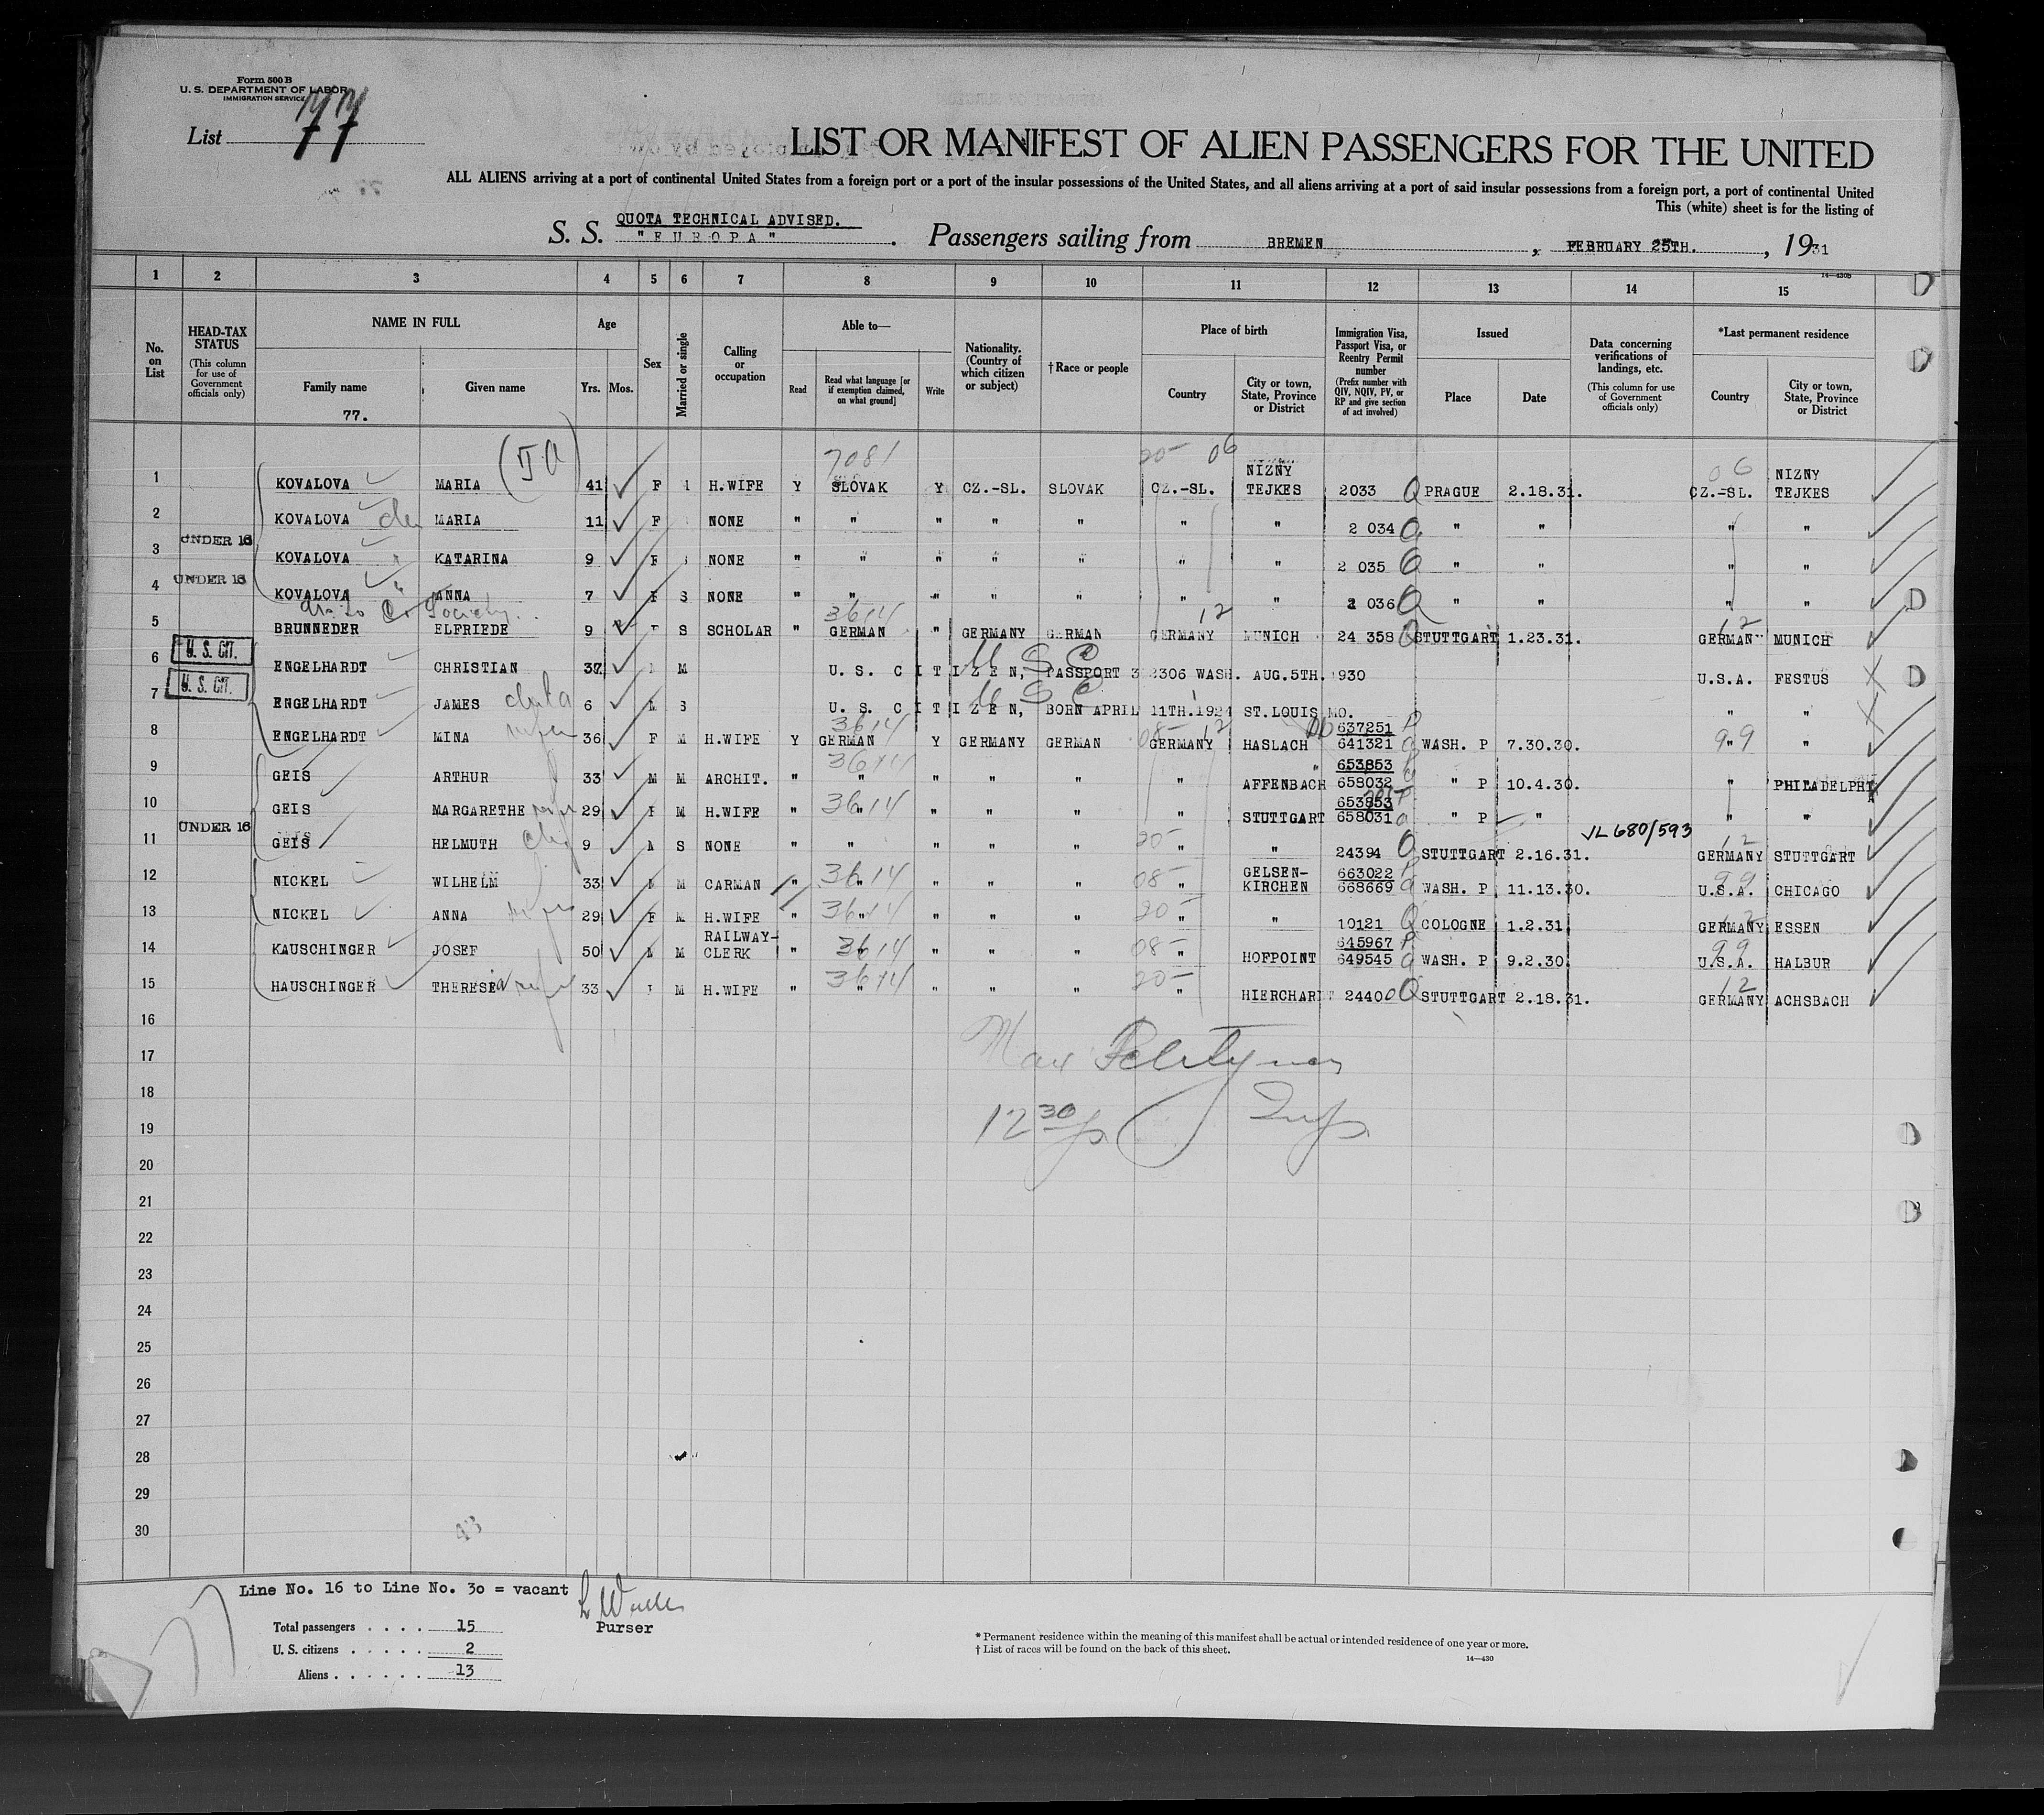 Form 500 B
U. S. DEPARTMENT OF LABOR
IMMIGRATION SERVICE
List 77
LIST OR MANIFEST OF ALIEN PASSENGERS FOR THE UNITED
ALL ALIENS arriving at a port of continental United States from a foreign port or a port of the insular possessions of the United States, and all aliens arriving at a port of said insular possessions from a foreign port, a port of continental United
This (white) sheet is for the listing of
QUOTA TECHNICAL ADVISED.
S. S. "EUROPA" . Passengers sailing from BREMEN , FEBRUARY 25TH. , 1931
14—430b
1 2 3 4 5 6 7 8 9 10 11 12 13 14 15
No. on List
HEAD-TAX STATUS (This column for use of Government officials only)
NAME IN FULL Family name Given name
77.
Age Yrs. Mos.
Sex
Married or single
Calling or occupation
Able to— Read Read what language [or if exemption claimed, on what ground] Write
Nationality. (Country of which citizen or subject)
†Race or people
Place of birth Country City or town, State, Province or District
Immigration Visa, Passport Visa, or Reentry Permit number (Prefix number with QIV, NQIV, PV, or RP and give section of act involved)
Issued Place Date
Data concerning verifications of landings, etc. (This column for use of Government officials only)
*Last permanent residence Country City or town, State, Province or District
7081 20- 06 06
1 KOVALOVA MARIA 41 F H.WIFE Y SLOVAK Y CZ.-SL. SLOVAK CZ.-SL. NIZNY TEJKES 2033 Q PRAGUE 2.18.31. CZ.-SL. NIZNY TEJKES
2 KOVALOVA MARIA 11 F NONE " " " " " " " 2 034 Q " " " "
3 UNDER 16 KOVALOVA KATARINA 9 F NONE " " " " " " " 2 035 Q " " " "
4 UNDER 16 KOVALOVA " ANNA 7 F S NONE " " " " " " " 2 036 Q " " " "
Society
3614 12 12
5 BRUNNEDER ELFRIEDE 9 F S SCHOLAR " GERMAN " GERMANY GERMAN GERMANY MUNICH 24 358 Q STUTTGART 1.23.31. GERMANY MUNICH
U. S. CIT. U S C
6 ENGELHARDT CHRISTIAN 37 M U. S. CITIZEN, PASSPORT 3 2306 WASH. AUG.5TH. 1930 U.S.A. FESTUS
U. S. CIT. U S C
7 ENGELHARDT JAMES 6 M S U. S. CITIZEN, BORN APRIL 11TH.1924 ST.LOUIS MO. " "
3614 08- 12 99
8 ENGELHARDT MINA wife 36 F M H.WIFE Y GERMAN Y GERMANY GERMAN GERMANY HASLACH 637251 P 641321 Q WASH. P 7.30.30. " "
3614
9 GEIS ARTHUR 33 M M ARCHIT. " " " " " " AFFENBACH 653853 658032 " P 10.4.30. " PHILADELPHIA
10 GEIS MARGARETHE wife 29 F M H.WIFE " 3614 " " " " STUTTGART 653853 658031 " P " " "
VL 680/593
11 UNDER 16 GEIS HELMUTH 9 M S NONE " " " " " 20- " " 24394 Q STUTTGART 2.16.31. 12 GERMANY STUTTGART
12 NICKEL WILHELM 33 M M CARMAN " 3614 " " " 08- " GELSEN-KIRCHEN 663022 668669 WASH. P 11.13.30. 99 U.S.A. CHICAGO
13 NICKEL ANNA wife 29 F M H.WIFE " 3614 " " " 20- " " 10121 Q COLOGNE 1.2.31. 12 GERMANY ESSEN
14 KAUSCHINGER JOSEF 50 M M RAILWAY-CLERK " 3614 " " " 08- " HOFPOINT 645967 649545 WASH. P 9.2.30. 99 U.S.A. HALBUR
15 HAUSCHINGER THERESIA wife 33 M H.WIFE " 3614 " " " 20- " 24400 Q STUTTGART 2.18.31. 12 GERMANY ACHSBACH
16
17 Max
18
19 12 30 p Insp
20
21
22
23
24
25
26
27
28
29
30
43
77
Line No. 16 to Line No. 30 = vacant
Purser
Total passengers . . . . 15
U. S. citizens . . . . . 2
Aliens . . . . . . 13
* Permanent residence within the meaning of this manifest shall be actual or intended residence of one year or more.
† List of races will be found on the back of this sheet.
14—430